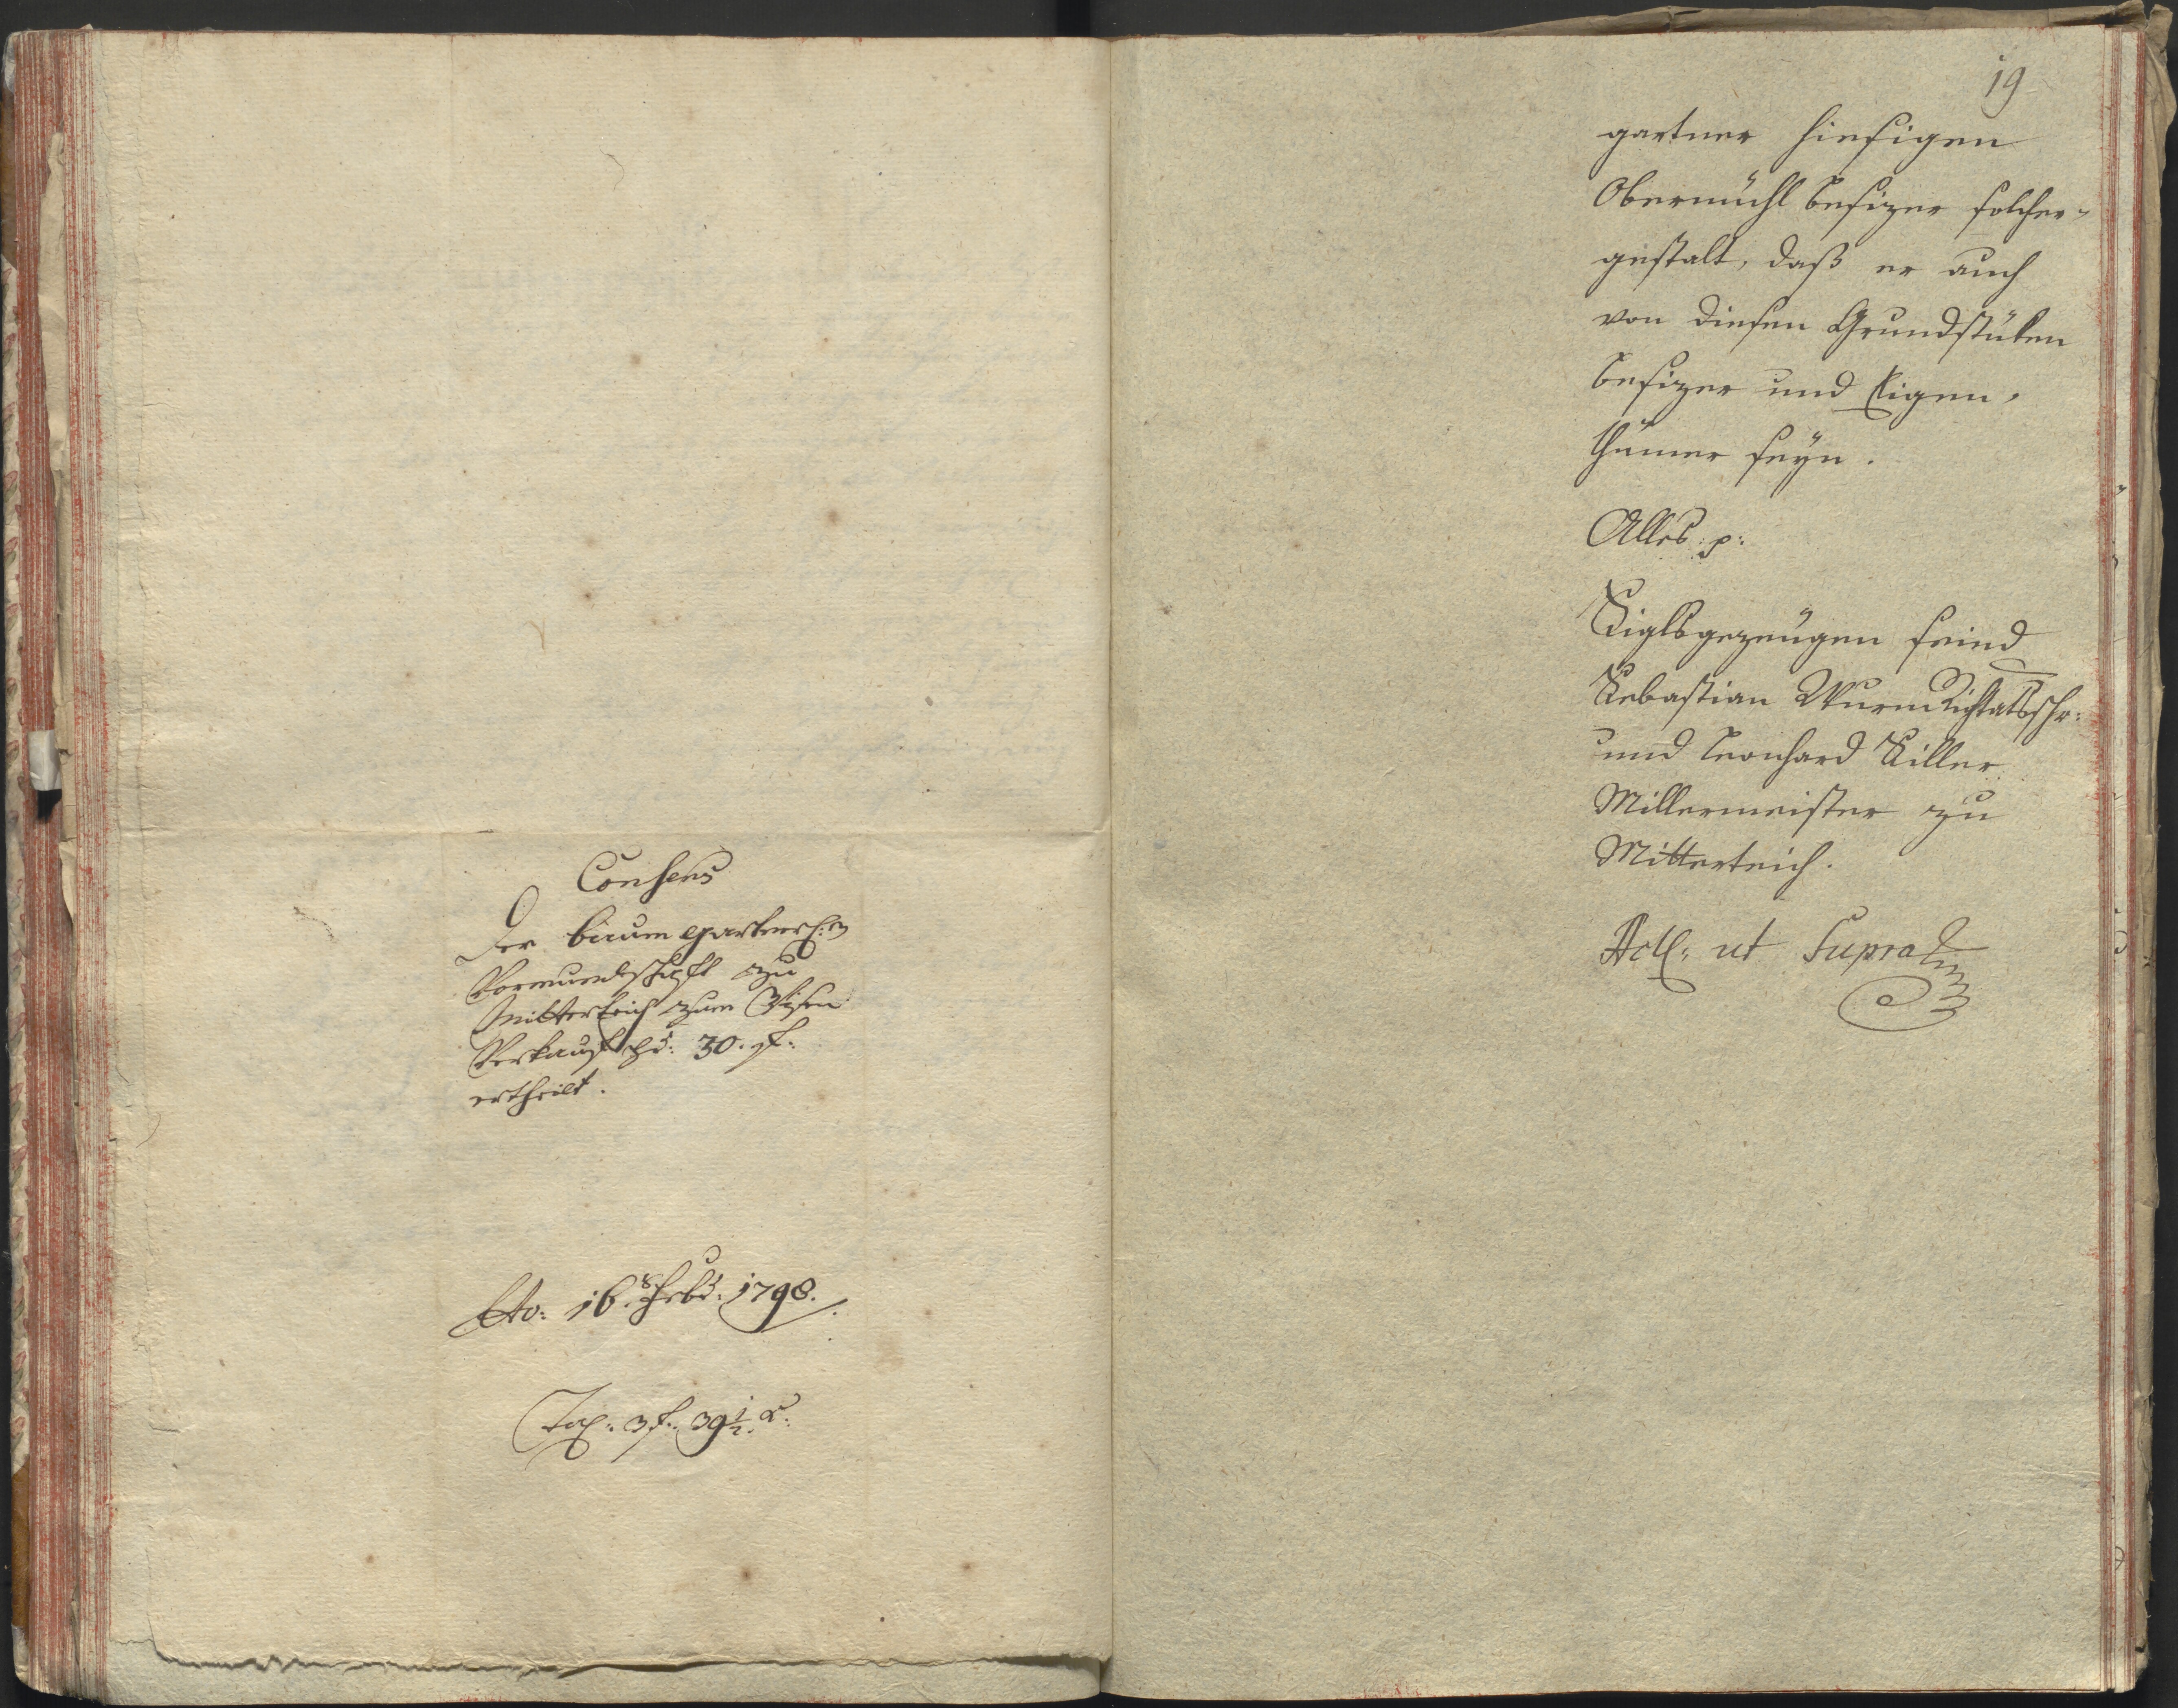 Consens
Der baumgartnerl:n
Vormundschaft zu
Mitterteich zum Wisen
Verkauf pr: 30. f:
ertheilt.
16. Febr: 1798.
Tax: 3 f. 39 1/2 x:
19
gartner hiesigen
Obermühl besizer solcher-
gestalt, daß er auch
von diesen Grundstüken
besizer und Eigen-
thümer seyn.
Alles p:
Siglsgezeugen seind
Sebastian Wurm
und Leonhard Siller
Millermeister zu
Mitterteich.
Act: ut Supra